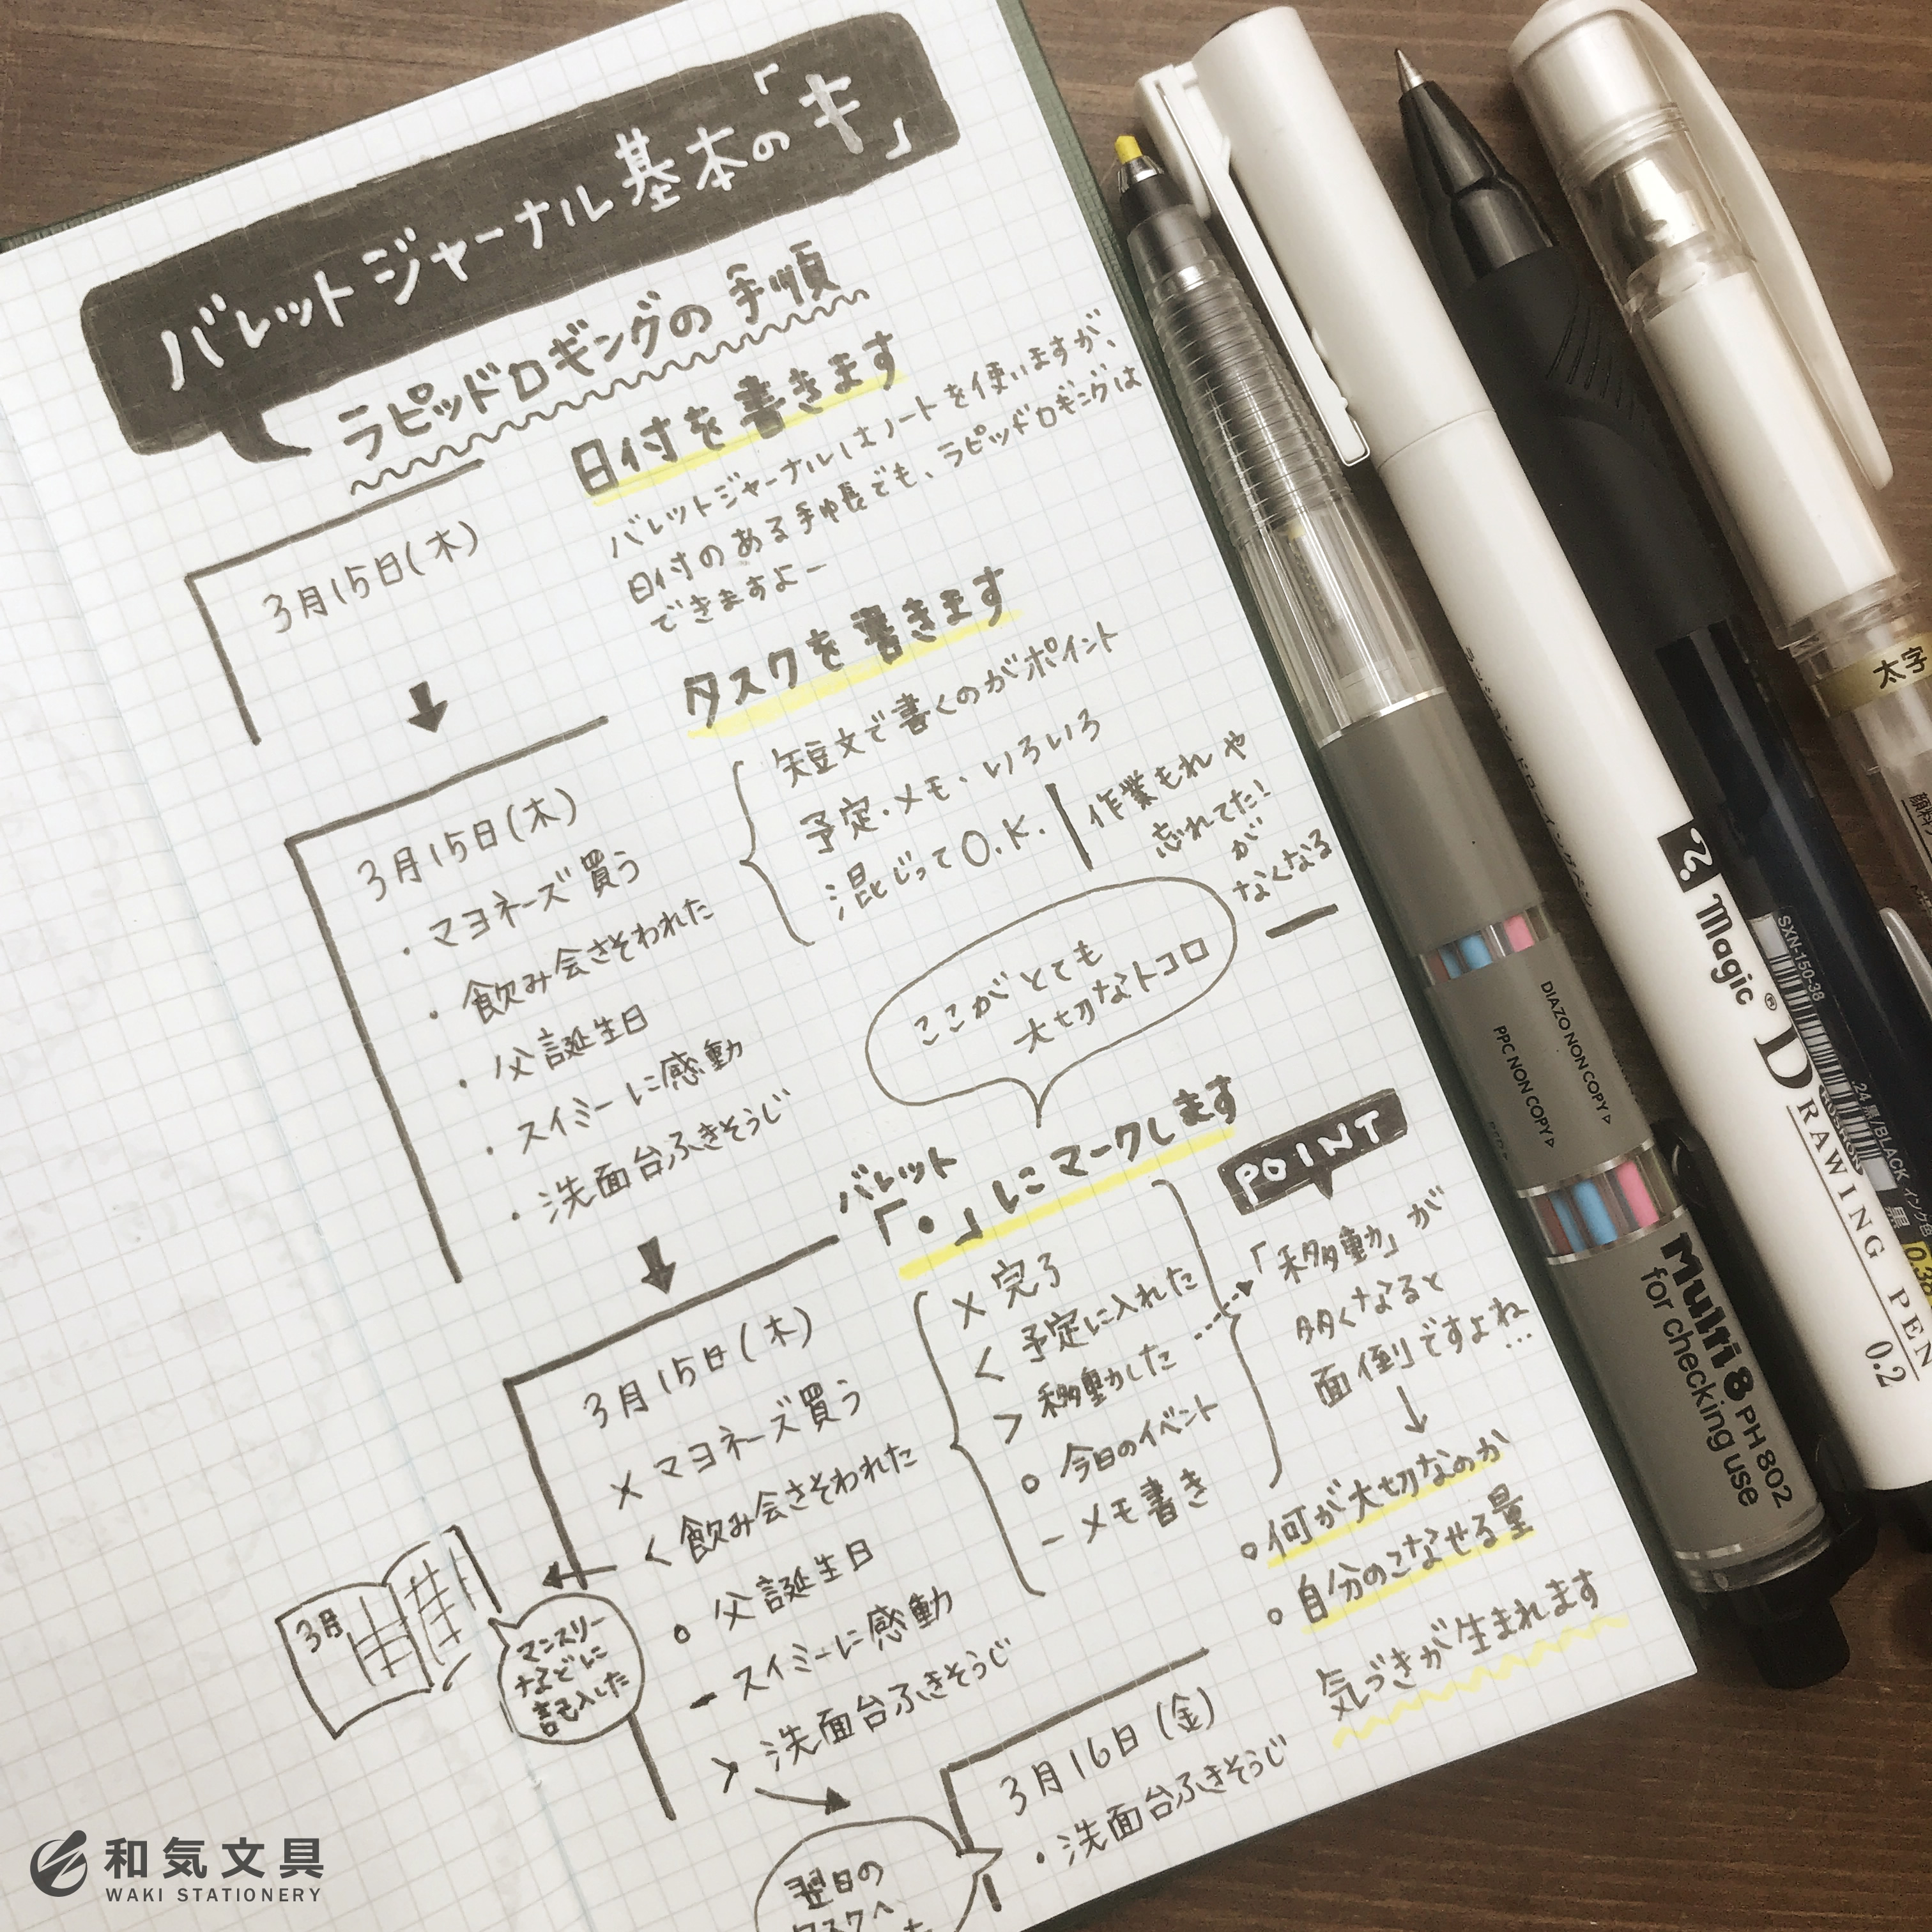 バレットジャーナル基本の「キ」
ラピッドロギングの手順
日付を書きます
バレットジャーナルはノートを使いますが、
日付のある手帳でも、ラピッドロギングは
できますよー
3月15日(木)
タスクを書きます
短文で書くのがポイント
予定・メモ・いろいろ
混じってO.K.
作業もれや
忘れてた!
が
なくなる
3月15日(木)
・マヨネーズ買う
・飲み会さそわれた
・父誕生日
・スイミーに感動
・洗面台ふきそうじ
ここがとても
大切なトコロ
バレット
「・」にマークします
× 完了
< 予定に入れた
> 移動した
○ 今日のイベント
− メモ書き
POINT
「移動」が
多くなると
面倒ですよね…
↓
○何が大切なのか
○自分のこなせる量
気づきが生まれます
3月15日(木)
× マヨネーズ買う
< 飲み会さそわれた
○ 父誕生日
− スイミーに感動
> 洗面台ふきそうじ
3月
マンスリー
などに
記入した
3月16日(金)
・洗面台ふきそうじ
翌日の
タスクへ
和気文具
WAKI STATIONERY
太字
顔料
Magic® DRAWING PEN
0.2
SXN-150-38
.24 黒/BLACK インク色
黒
DIAZO NON COPY▷
PPC NON COPY▷
Multi 8 PH 802
for checking use